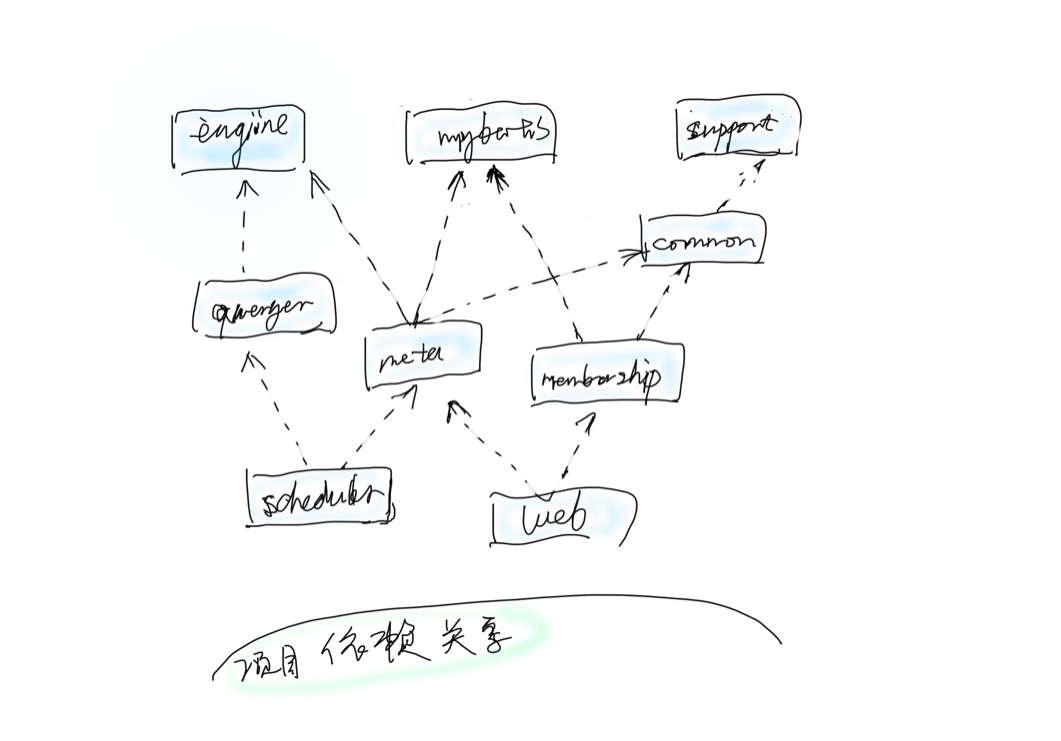 engine
mybatis
support
common
qwerzer
meta
membership
scheduler
web
项目 依赖 关系